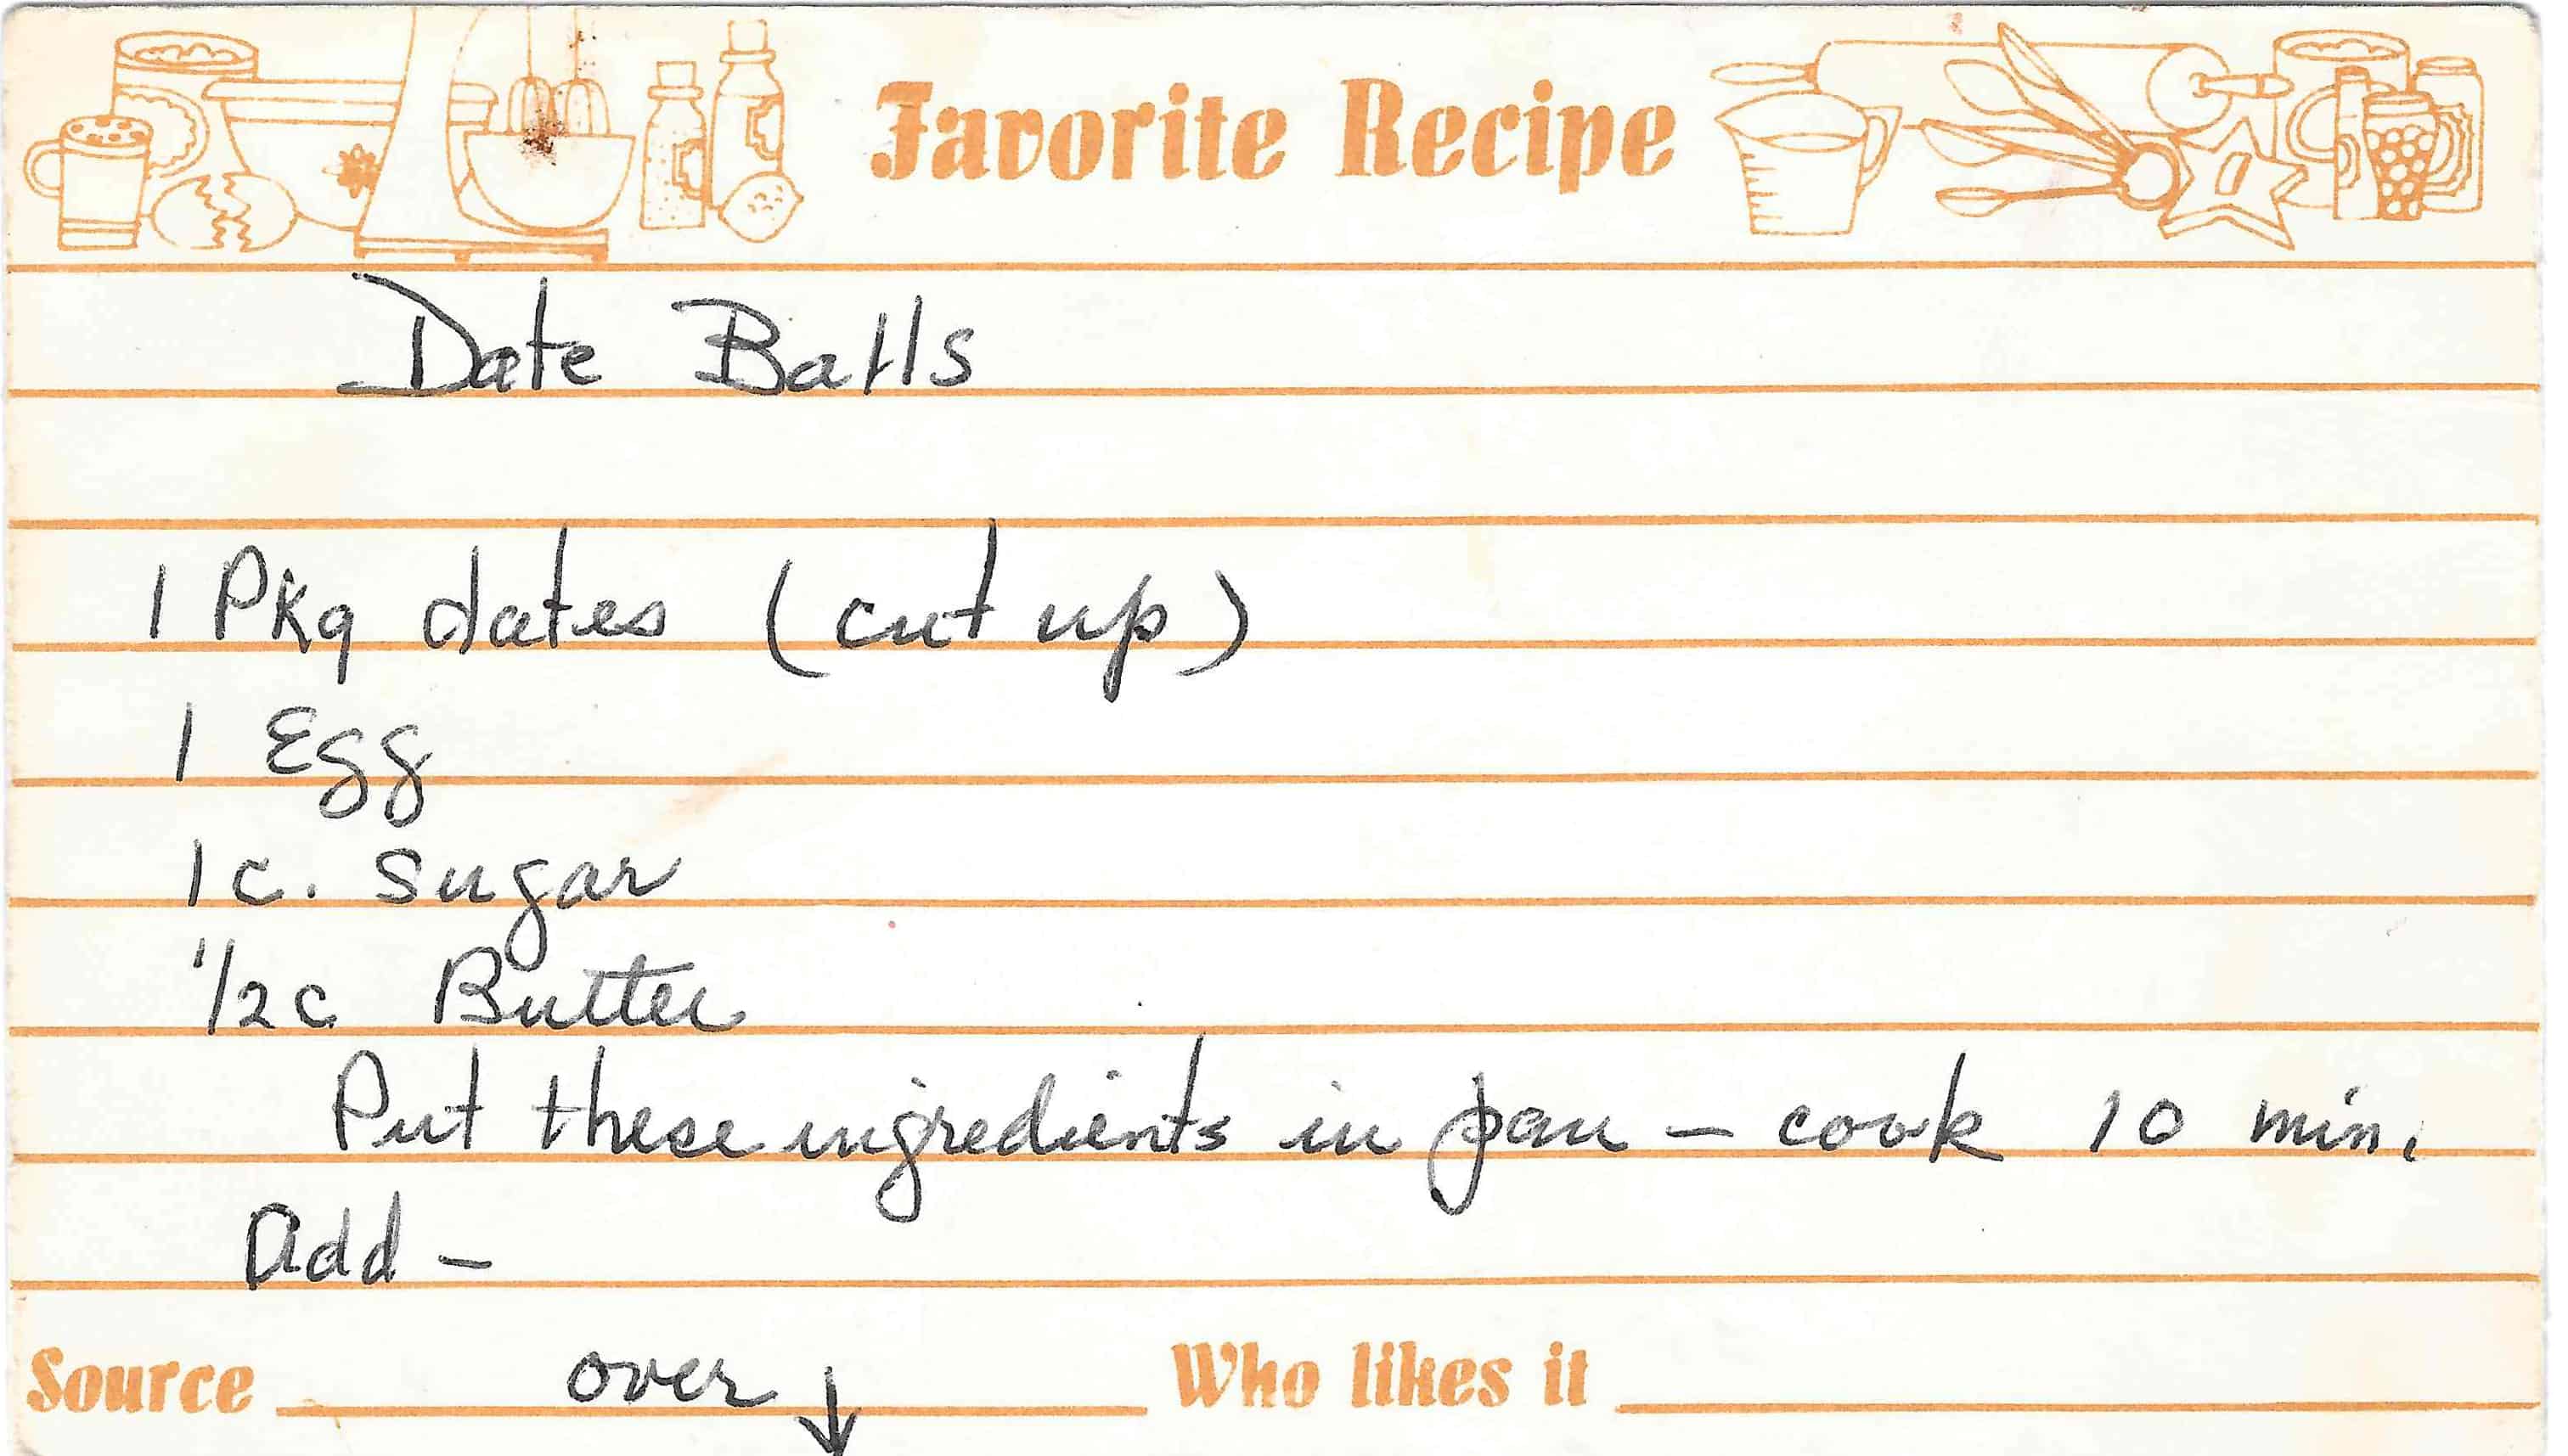 Favorite Recipe
Date Balls
1 Pkg dates (cut up)
1 Egg
1 c. sugar
1/2 c Butter
Put these ingredients in pan – cook 10 min.
Add –
Source over ↓ Who likes it